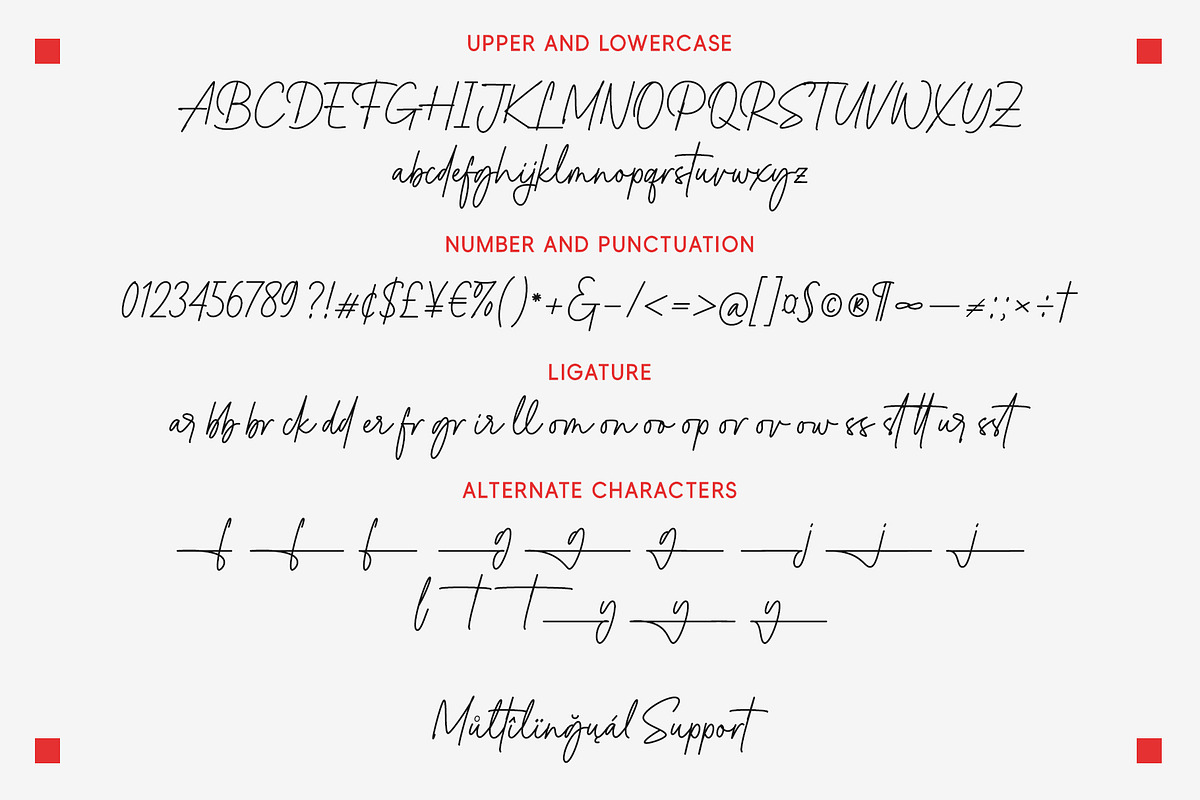 UPPER AND LOWERCASE
ABCDEFGHIJKLMNOPQRSTUVWXYZ
abcdefghijklmnopqrstuvwxyz
NUMBER AND PUNCTUATION
0123456789 ?!#¢$£¥€%()*+&-/<=>@[]¤§©®¶∞—≠:;×÷†
LIGATURE
ar bb br ck dd er fr gr ir ll om on oo op or ov ow ss st tt ur sst
ALTERNATE CHARACTERS
f f f g g g j j j
l t t y y y
Můltîlïnğųál Support